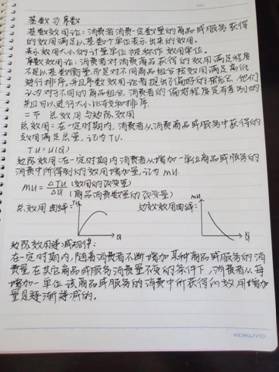 基数 与 序数
基数效用论：消费者消费一定数量的商品或服务获得
的效用满足以基数个单位表示出来的效用。
表示效用大小的计量单位被称作效用单位。
序数效用论：消费者对消费商品获得的效用满足程度
不是以基数衡量，而是对不同商品组合按效用满足高低
进行排序。
二、总效用与边际效用
总效用：在一定时期内，消费者从消费商品或服务中获得的效
用满足总量，记为TU。
TU = U(Q)
边际效用：在一定时期内消费者从增加一单位商品或服务的
消费中所得到的效用增加量，记为MU。
MU = ΔTU (效用的改变量)
ΔQ (商品消费数量的改变量)
总效用曲线：
边际效用曲线：
MU
Q
Q
边际效用递减规律：
在一定时期内，随着消费者不断增加某种商品或服务的消
费量，在其它商品或服务消费量不变的条件下，消费者从每
增加一单位该商品或服务的消费中所获得的效用增加
量是逐渐递减的。
KOKUYO